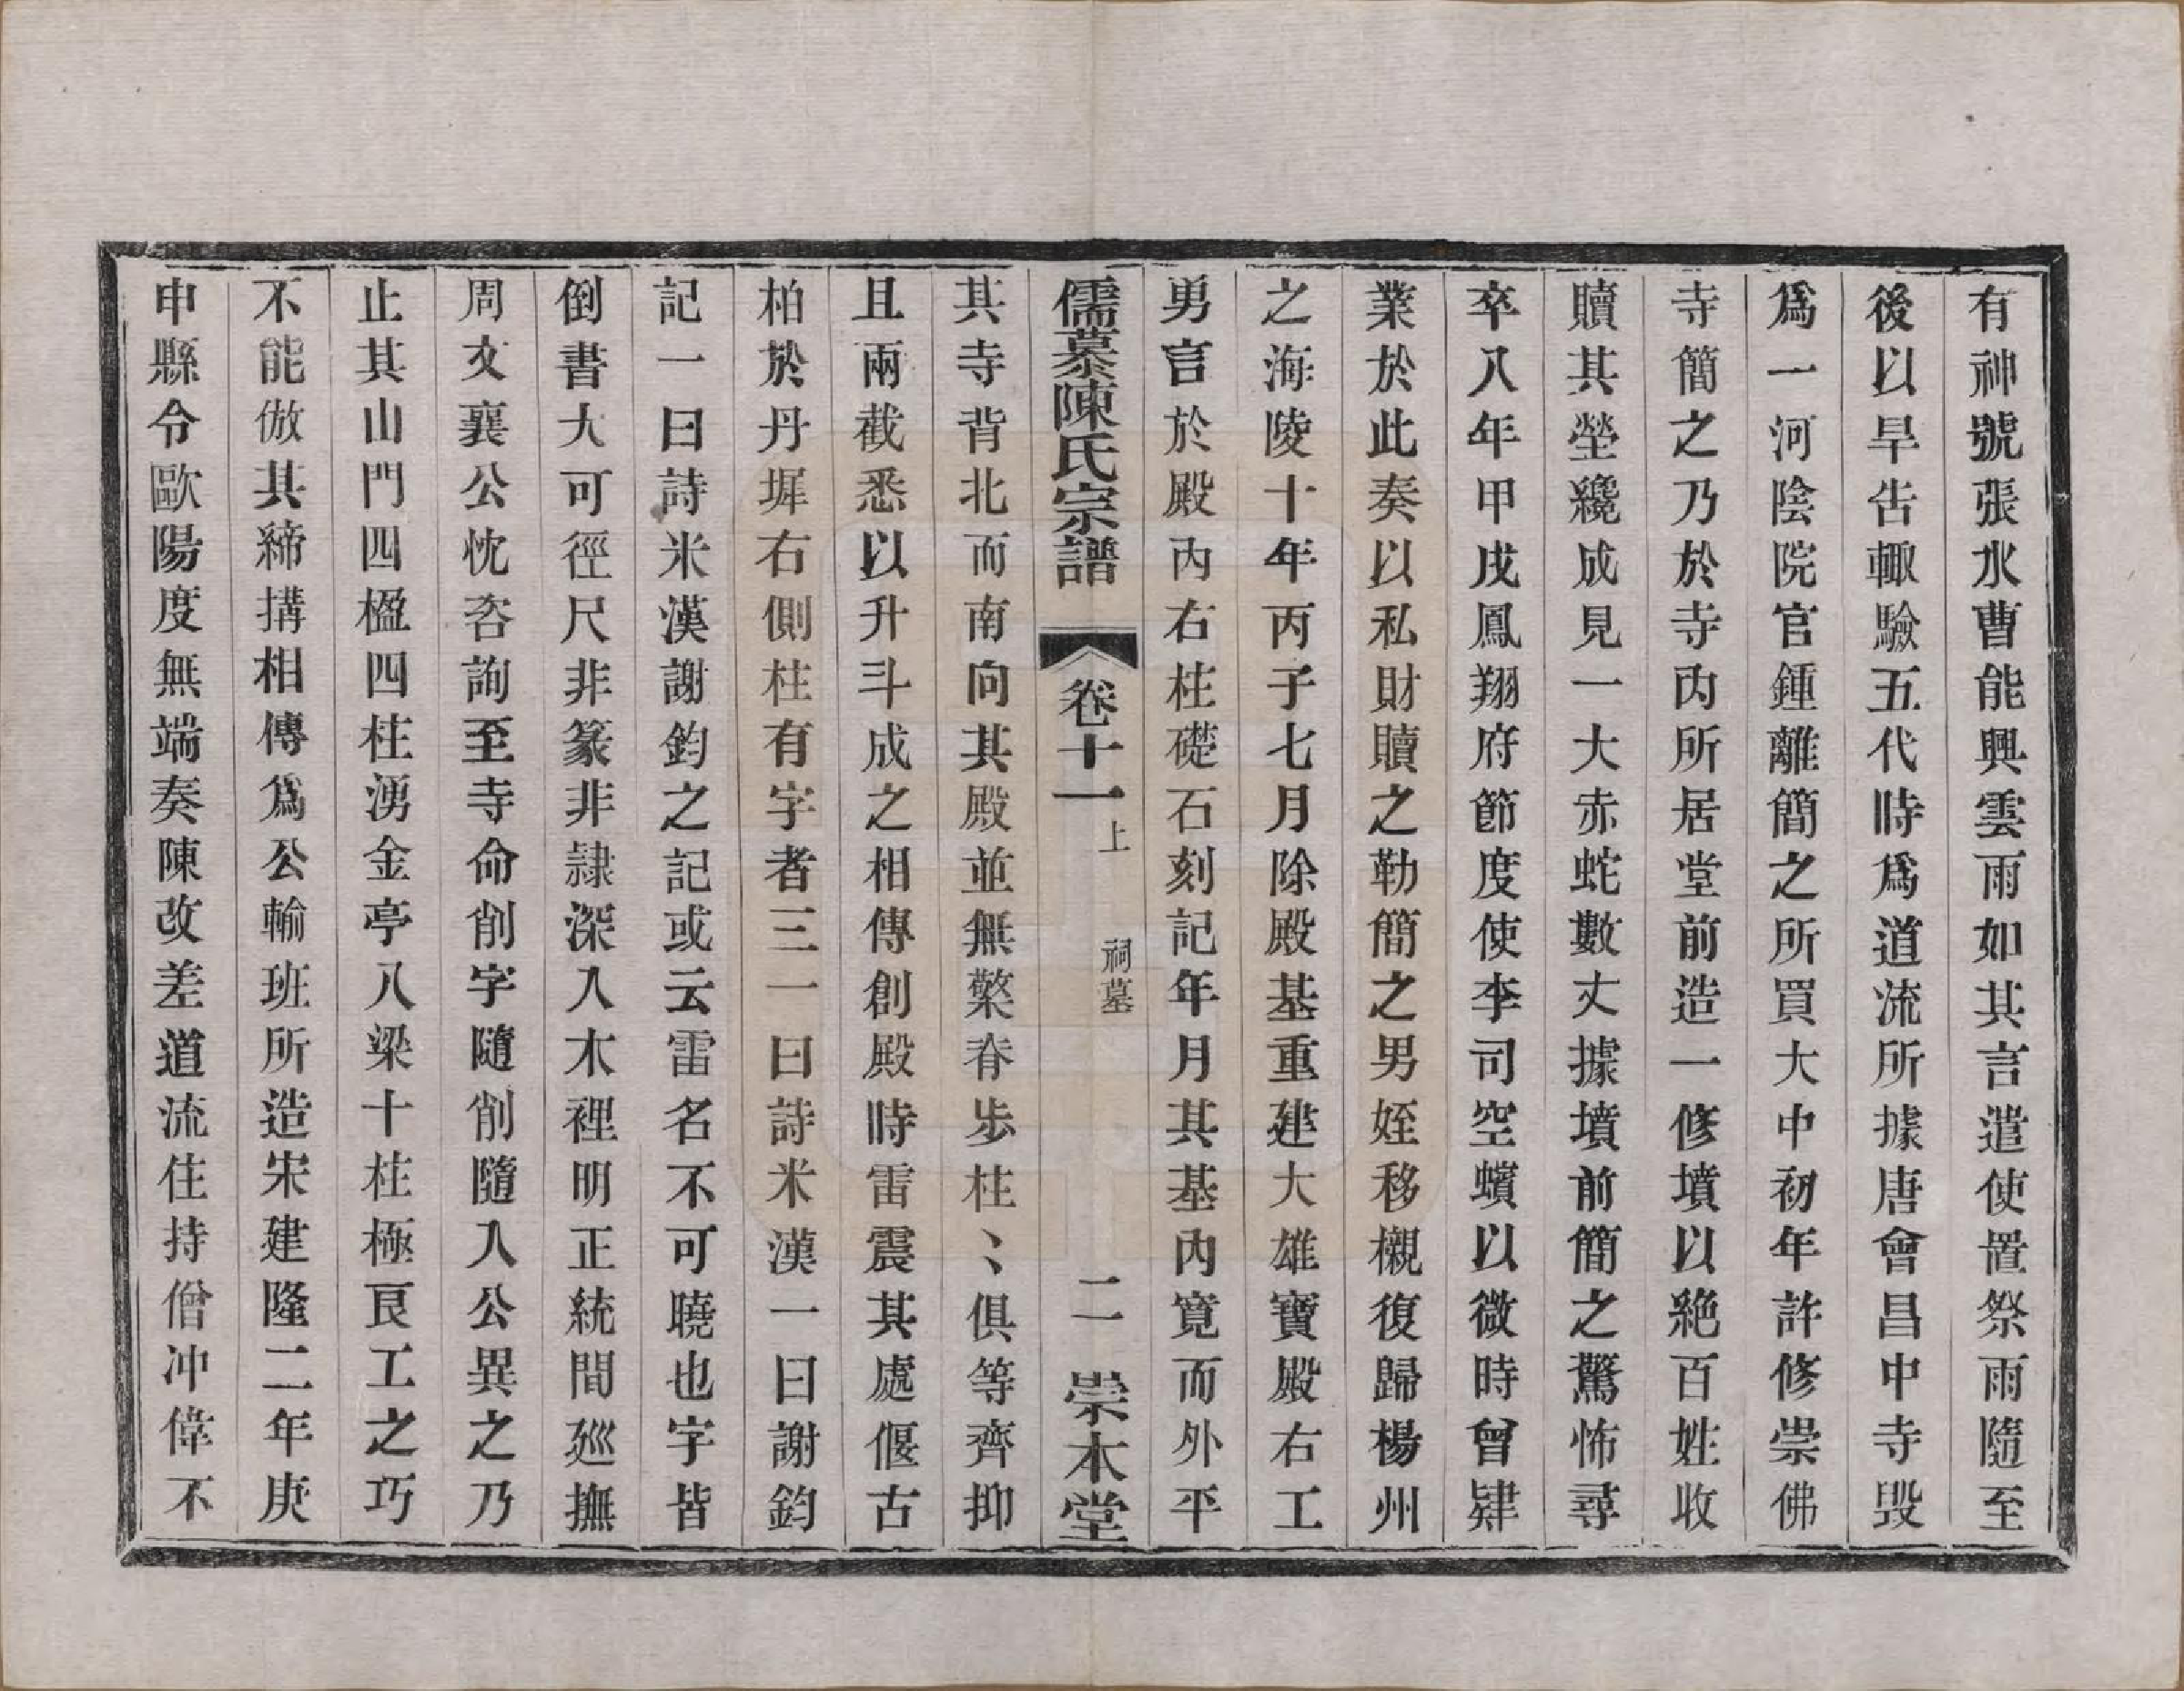 有神號張水曹能興雲雨如其言遣使置祭雨隨至
後以旱告輙驗五代時爲道流所據唐會昌中寺毀
爲一河陰院官鍾離簡之所買大中初年許修崇佛
寺簡之乃於寺內所居堂前造一修墳以絶百姓收
贖其塋纔成見一大赤蛇數丈據墳前簡之驚怖尋
卒八年甲戌鳳翔府節度使李司空蠙以微時曾肄
業於此奏以私財贖之勒簡之男姪移櫬復歸楊州
之海陵十年丙子七月除殿基重建大雄寶殿右工
勇言於殿內右柱礎石刻記年月其基內寬而外平
儒慕陳氏宗譜 卷十一上 祠墓 二 崇本堂
其寺背北而南向其殿並無檠脊步柱〻俱等齊抑
且兩截悉以升斗成之相傳創殿時雷震其處偃古
柏於丹墀右側柱有字者三一曰詩米漢一曰謝鈞
記一曰詩米漢謝鈞之記或云雷名不可曉也字皆
倒書大可徑尺非篆非隷深入木裡明正統間廵撫
周文襄公忱咨詢至寺命削字隨削隨入公異之乃
止其山門四楹四柱湧金亭八梁十柱極良工之巧
不能倣其締搆相傳爲公輸班所造宋建隆二年庚
申縣令歐陽度無端奏陳改差道流住持僧冲偉不